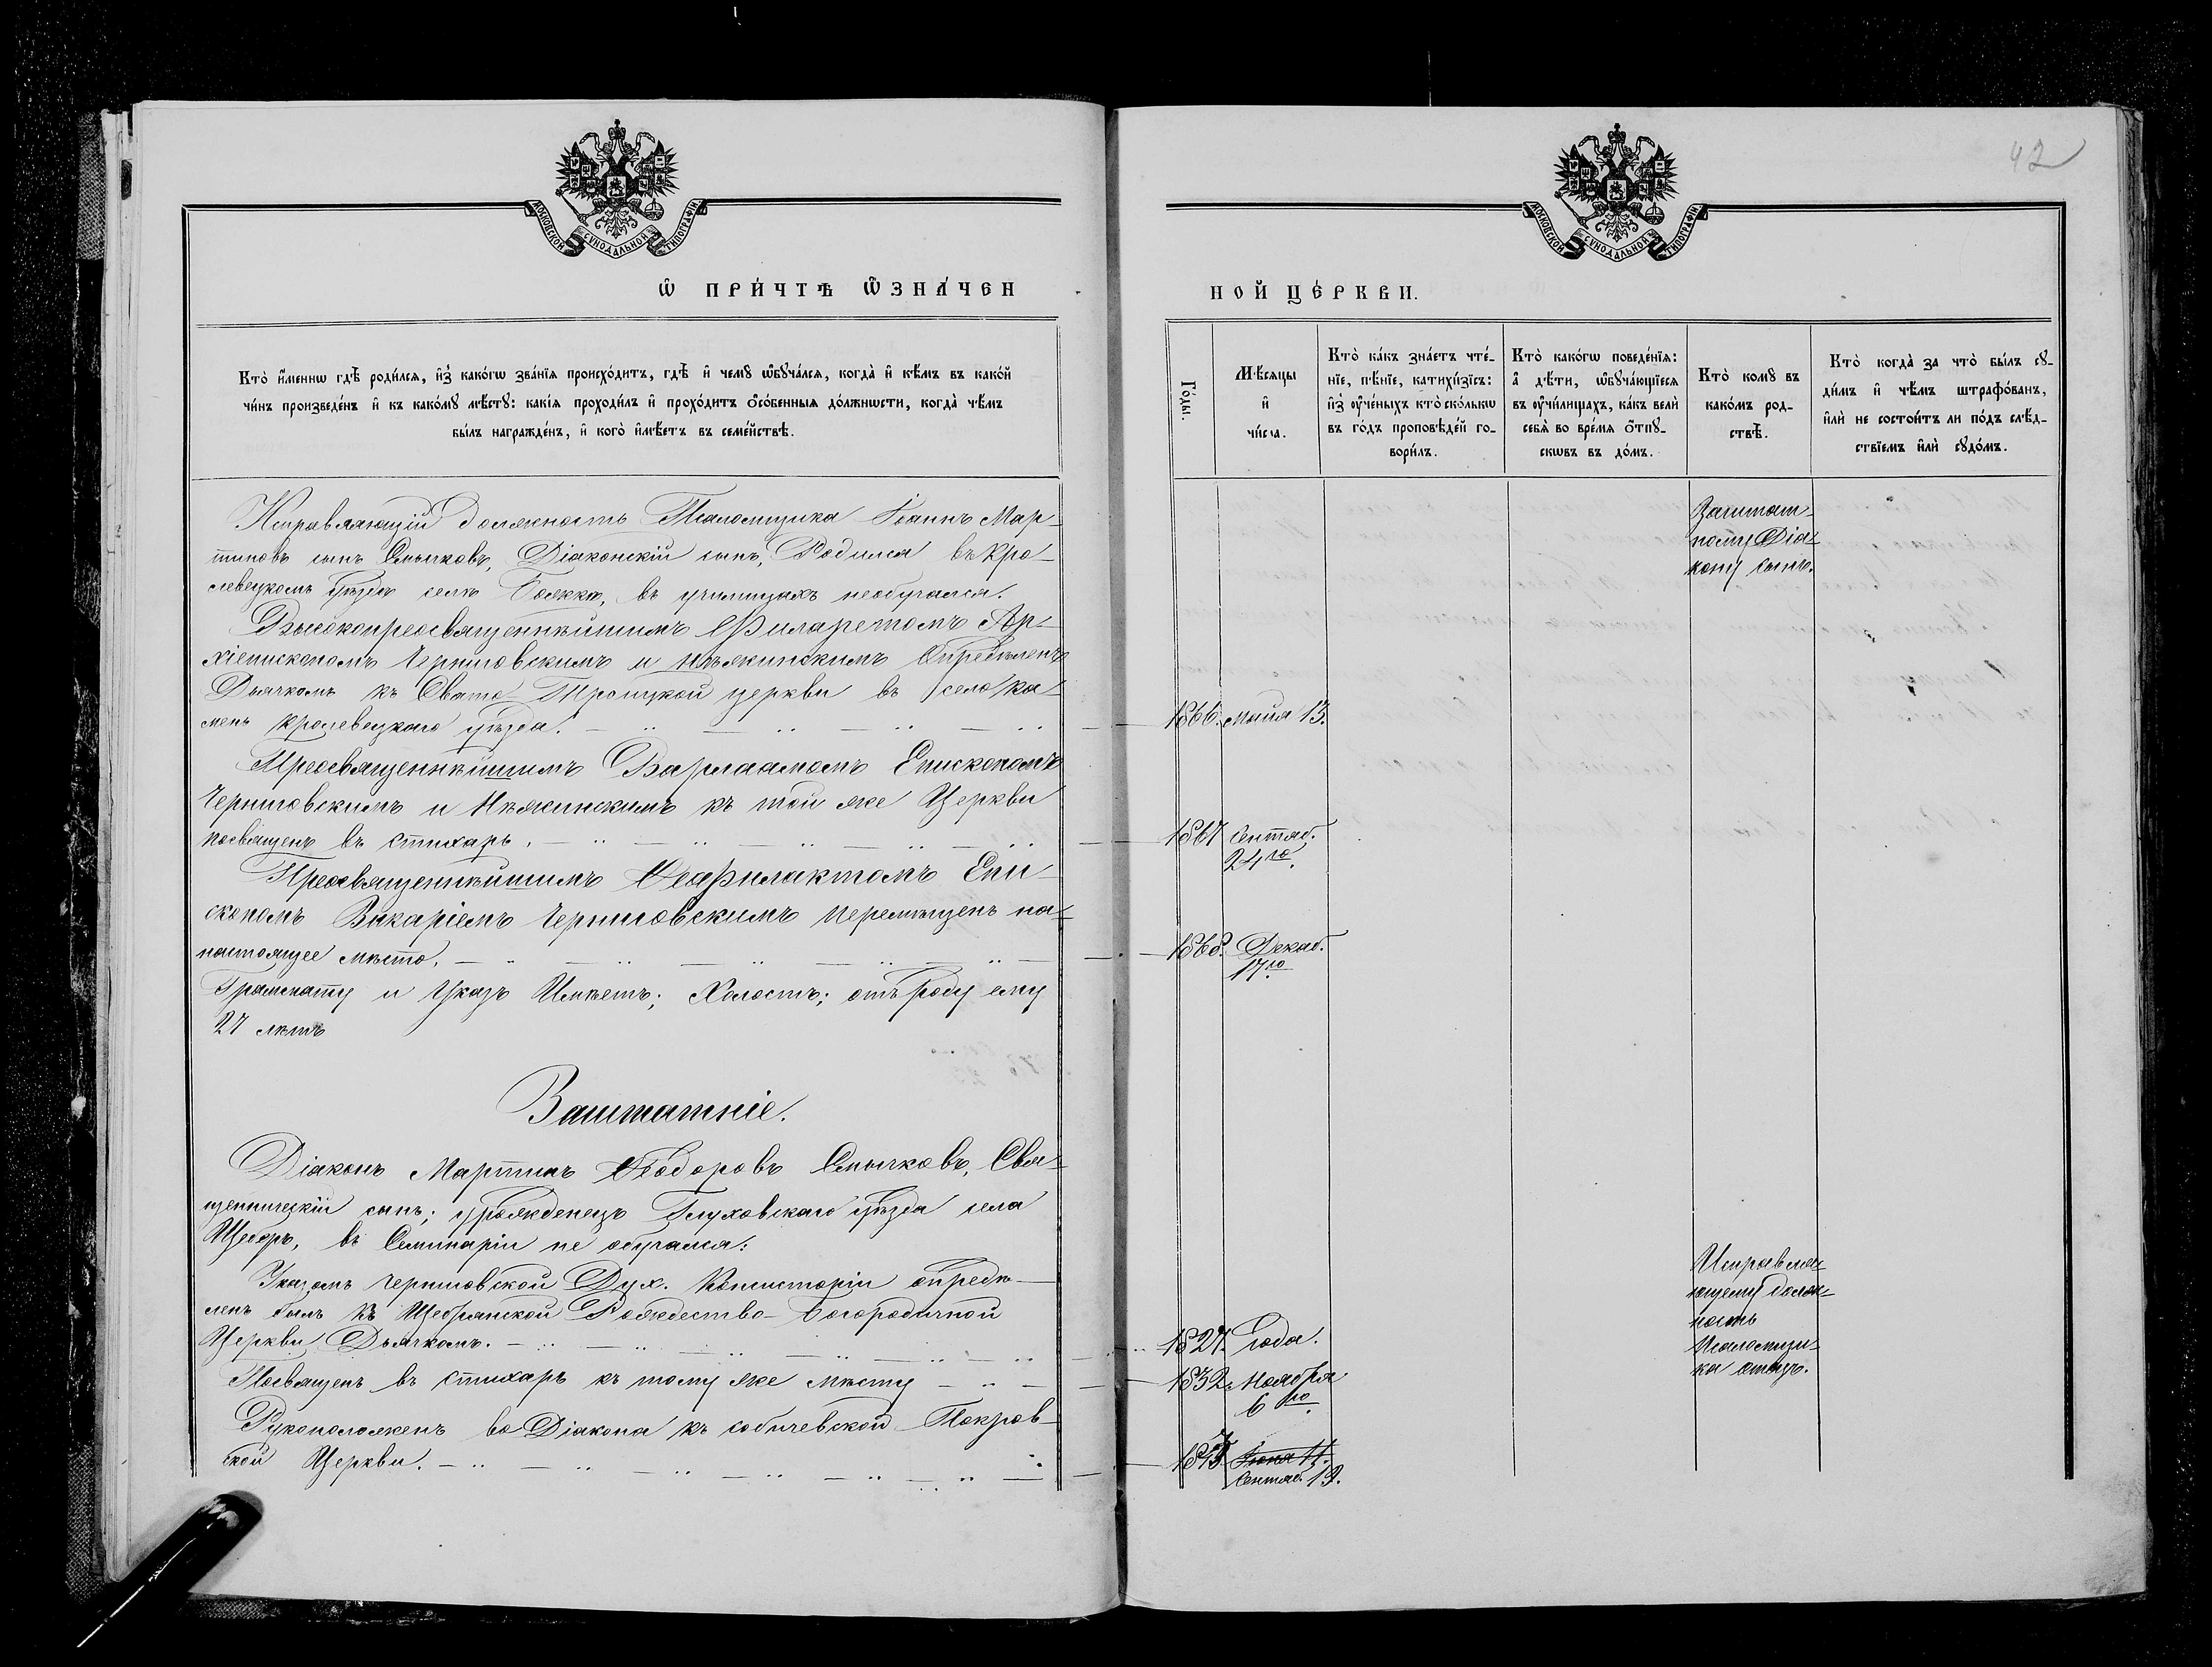 42
МОСКОВСКОЙ СУНОДАЛЬНОЙ ТИПОГРАФІИ
МОСКОВСКОЙ СУНОДАЛЬНОЙ ТИПОГРАФІИ
Ѡ ПРИ́ЧТѢ ѠЗНА́ЧЕН
НОЙ ЦЕ́РКВИ.
Кто̀ и҆́менно гдѣ̀ роди́лся, и҆з̾ како́гѡ зва́нїя происхо́дитъ, гдѣ̀ и҆ чемꙋ̀ ѡ҆бꙋча́лся, когда̀ и҆ кѣ́мъ въ како́й
чи́нъ произведе́нъ и҆ къ како́мꙋ мѣ́стꙋ: какі́я проходи́лъ и҆ прохо́дитъ ѻ҆со́бенныя до́лжности, когда̀ чѣ́мъ
бы́лъ награжде́нъ, и҆ кого̀ и҆мѣ́етъ въ семе́йствѣ.
Го́ды.
Мѣ́сяцы
и҆
чи́сла.
Кто̀ ка́къ зна́етъ чте́-
нїе, пѣ́нїе, катихи́зїсъ:
и҆з̾ ᲂу҆че́ныхъ кто̀ ско́лькѡ
въ го́дъ проповѣ́дей го-
вори́лъ.
Кто̀ како́гѡ поведе́нїя:
а҆ дѣ́ти, ѡ҆бꙋча́ющїеся
въ ᲂу҆чи́лищахъ, ка́къ велѝ
себя̀ во вре́мя ѻ҆́тпꙋ-
сковъ въ до́мъ.
Кто̀ комꙋ̀ въ
како́мъ род-
ствѣ̀.
Кто̀ когда̀ за что̀ бы́лъ сꙋ-
ди́мъ и҆ чѣ́мъ штрафо́ванъ,
и҆лѝ не состои́тъ ли по́дъ слѣ́д-
ствїемъ и҆лѝ сꙋдо́мъ.
Исправляющій должность Псаломщика Іоаннъ Мар-
тиновъ сынъ Смычковъ, Діаконскій сынъ, Родился въ Кро-
левецкомъ уѣздѣ селѣ въ училищахъ необучался.
Высокопреосвященнѣйшимъ Филаретомъ Ар-
хіепископомъ Черниговскимъ и Нѣжинскимъ Опредѣленъ
Дьячкомъ къ Свято Троицкой церкви въ село Ка-
мень Кролевецкаго уѣзда.
1866. Мaiя 13.
Преосвященнѣйшимъ Варлаамомъ Епископомъ
Черниговскимъ и Нѣжинскимъ къ той же Церкви
посвященъ въ стихарь.
1867 Сентяб.
24го.
Преосвященнѣйшимъ Ѳеофилактомъ Епи-
скопомъ Викаріемъ Черниговскимъ перемѣщенъ на
настоящее мѣсто.
1868. Декаб.
17го
Граммату и Указъ Имѣетъ; Холостъ; отъ роду ему
27 лѣтъ
Заштат-
ному Діа-
кону сынъ.
Заштатніе.
Діаконъ Мартинъ Ѳеодоровъ Смычковъ, Свя-
щенническій сынъ; урожденецъ Глуховскаго уѣзда села
въ Семинаріи не обучался:
Указомъ Черниговской Дух. Консисторіи опредѣ-
ленъ былъ къ Щебрянской Рождество-Богородичной
Церкви Дьячкомъ.
1827. года.
Посвященъ въ стихарь къ тому же мѣсту
1832. Ноября
6го.
Рукоположенъ во Діакона къ Собичевской Покров-
ской Церкви.
Іюня 11.
Сентяб. 19.
Исправля-
ющему долж-
ность
Псаломщи-
ка отецъ.